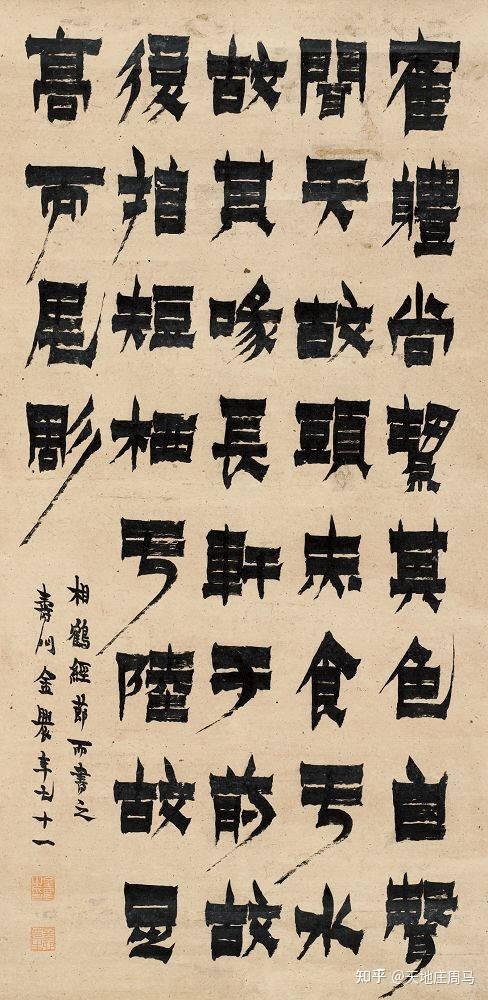 隺軆尚絜其色白聲
聞天故頭赤食亐水
故其喙長軒于前故
後指短栖亐陸故足
高而尾彫
相鶴經節而書之
壽門金農年七十一
知乎 @天地庄周马